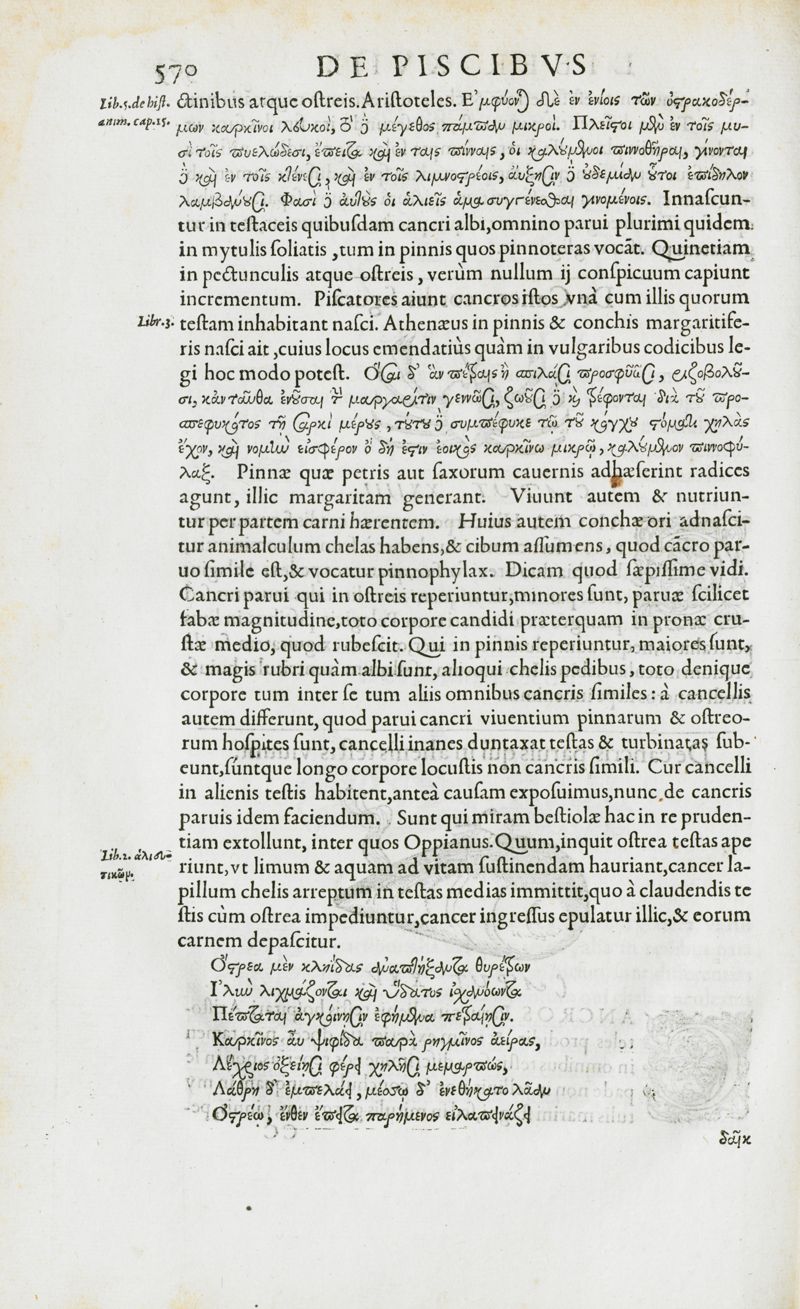 570 DE PISCIBVS
Lib. 5. de hist.
anim. cap. 15.
ctinibus atque ostreis. Aristoteles. Ἐμφύονται δὲ ἐν ἐνίοις τῶν ὀστρακοδέρ-
μων καρκῖνοι λευκοὶ, τὸ δὲ μέγεθος πάμπαν μικροί. Πλεῖστοι μὲν ἐν τοῖς μυ-
σὶ τοῖς πυελώδεσι, ἔπειτα καὶ ἐν ταις πίνναις, οἱ καλούμενοι πιννοθῆραι, γίνονται
δὲ καὶ ἐν τοῖς κτένεσι, καὶ ἐν τοῖς λιμνοστρέοις, αὔξησιν δὲ οὐδεμίαν οὗτοι ἐπίδηλον
λαμβάνουσι. Φασὶ δὲ αὐτοὺς οἱ ἁλιεῖς ἅμα συγγένεσθαι γινομένοις. Innascun-
tur in testaceis quibusdam cancri albi, omnino parui plurimi quidem
in mytulis soliatis, tum in pinnis quos pinnoteras vocāt. Quinetiam
in pectunculis atque ostreis, verùm nullum ij conspicuum capiunt
incrementum. Piscatores aiunt cancros istos vnà cum illis quorum
Libr. 3.
testam inhabitant nasci. Athenæus in pinnis & conchis margaritife-
ris nasci ait, cuius locus emendatiùs quàm in vulgaribus codicibus le-
gi hoc modo potest. Ὅσαι δ' ἂν πέτραις ἢ σπιλάσι προσφῦσι, ῥιζοβολοῦ-
σι, κἀνταῦθα ἐνοῦσαι τὴν μαργαρῖτιν γεννῶσι, ζῶσι δὲ καὶ τρέφονται διὰ τοῦ προ-
σπεφυκότος τῇ σαρκὶ μέρους, τούτου δὲ συμπέφυκε τῷ τοῦ κόγχου στόματι χηλὰς
ἔχον, καὶ νομὴν εἰσφέρον ὃ δή ἐστιν ἐοικὸς καρκίνῳ μικρῷ, καλούμενον πιννοφύ-
λαξ. Pinnæ quæ petris aut saxorum cauernis adhæserint radices
agunt, illic margaritam generant. Viuunt autem & nutriun-
tur per partem carni hærentem. Huius autem conchæ ori adnasci-
tur animalculum chelas habens, & cibum assumens, quod cācro par-
uo simile est, & vocatur pinnophylax. Dicam quod sæpissime vidi.
Cancri parui qui in ostreis reperiuntur, minores sunt, paruæ scilicet
fabæ magnitudine, toto corpore candidi præterquam in pronæ cru-
stæ medio, quod rubescit. Qui in pinnis reperiuntur, maiores sunt,
& magis rubri quàm albi sunt, alioqui chelis pedibus, toto denique
corpore tum inter se tum aliis omnibus cancris similes: à cancellis
autem differunt, quod parui cancri viuentium pinnarum & ostreo-
rum hospites sunt, cancelli inanes duntaxat testas & turbinatas sub-
eunt, súntque longo corpore locustis non cancris simili. Cur cancelli
in alienis testis habitent, anteà causam exposuimus, nunc de cancris
paruis idem faciendum. Sunt qui miram bestiolæ hac in re pruden-
Lib. 2. ἁλιευ-
τικῶν.
tiam extollunt, inter quos Oppianus. Quum, inquit ostrea testas ape
riunt, vt limum & aquam ad vitam sustinendam hauriant, cancer la-
pillum chelis arreptum in testas medias immittit, quo à claudendis te
stis cùm ostrea impediuntur, cancer ingressus epulatur illic, & eorum
carnem depascitur.
Ὄστρεα μὲν κληῖδας ἀναπτύξαντα θυρέτρων
Ἰλὺν λιχμάζονται καὶ ὕδατος ἰχανόωντα
Πέπταται ἀγκοίνῃσιν ἐφήμενα πετραίῃσιν.
Καρκῖνος αὖ ψηφῖδα παρὰ ῥηγμῖνος ἀείρας,
Λέχριος ὀξείῃσι φέρει χηλῇσι μεμαρπὼς,
Λάθρη δ' ἐμπελάει, μέσσῳ δ' ἐνεθήκατο λᾶαν
Ὀστρέῳ, ἔνθεν ἔπειτα παρήμενος εἰλαπινάζει
δαῖτ